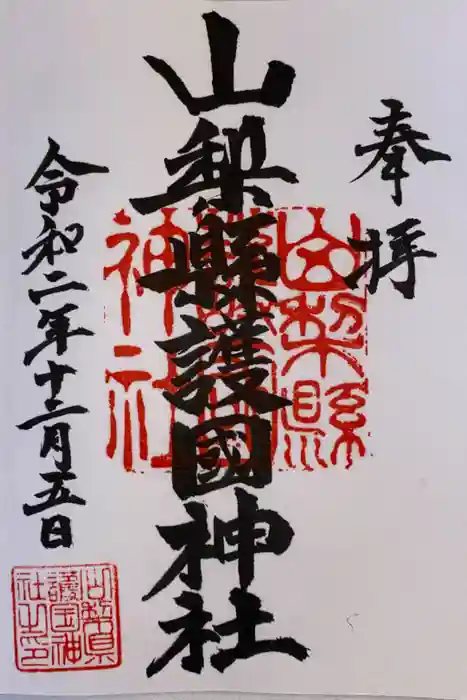 奉拝
山梨縣護國神社
令和二年十二月五日
山梨縣護國神社
山梨県護国神社之印